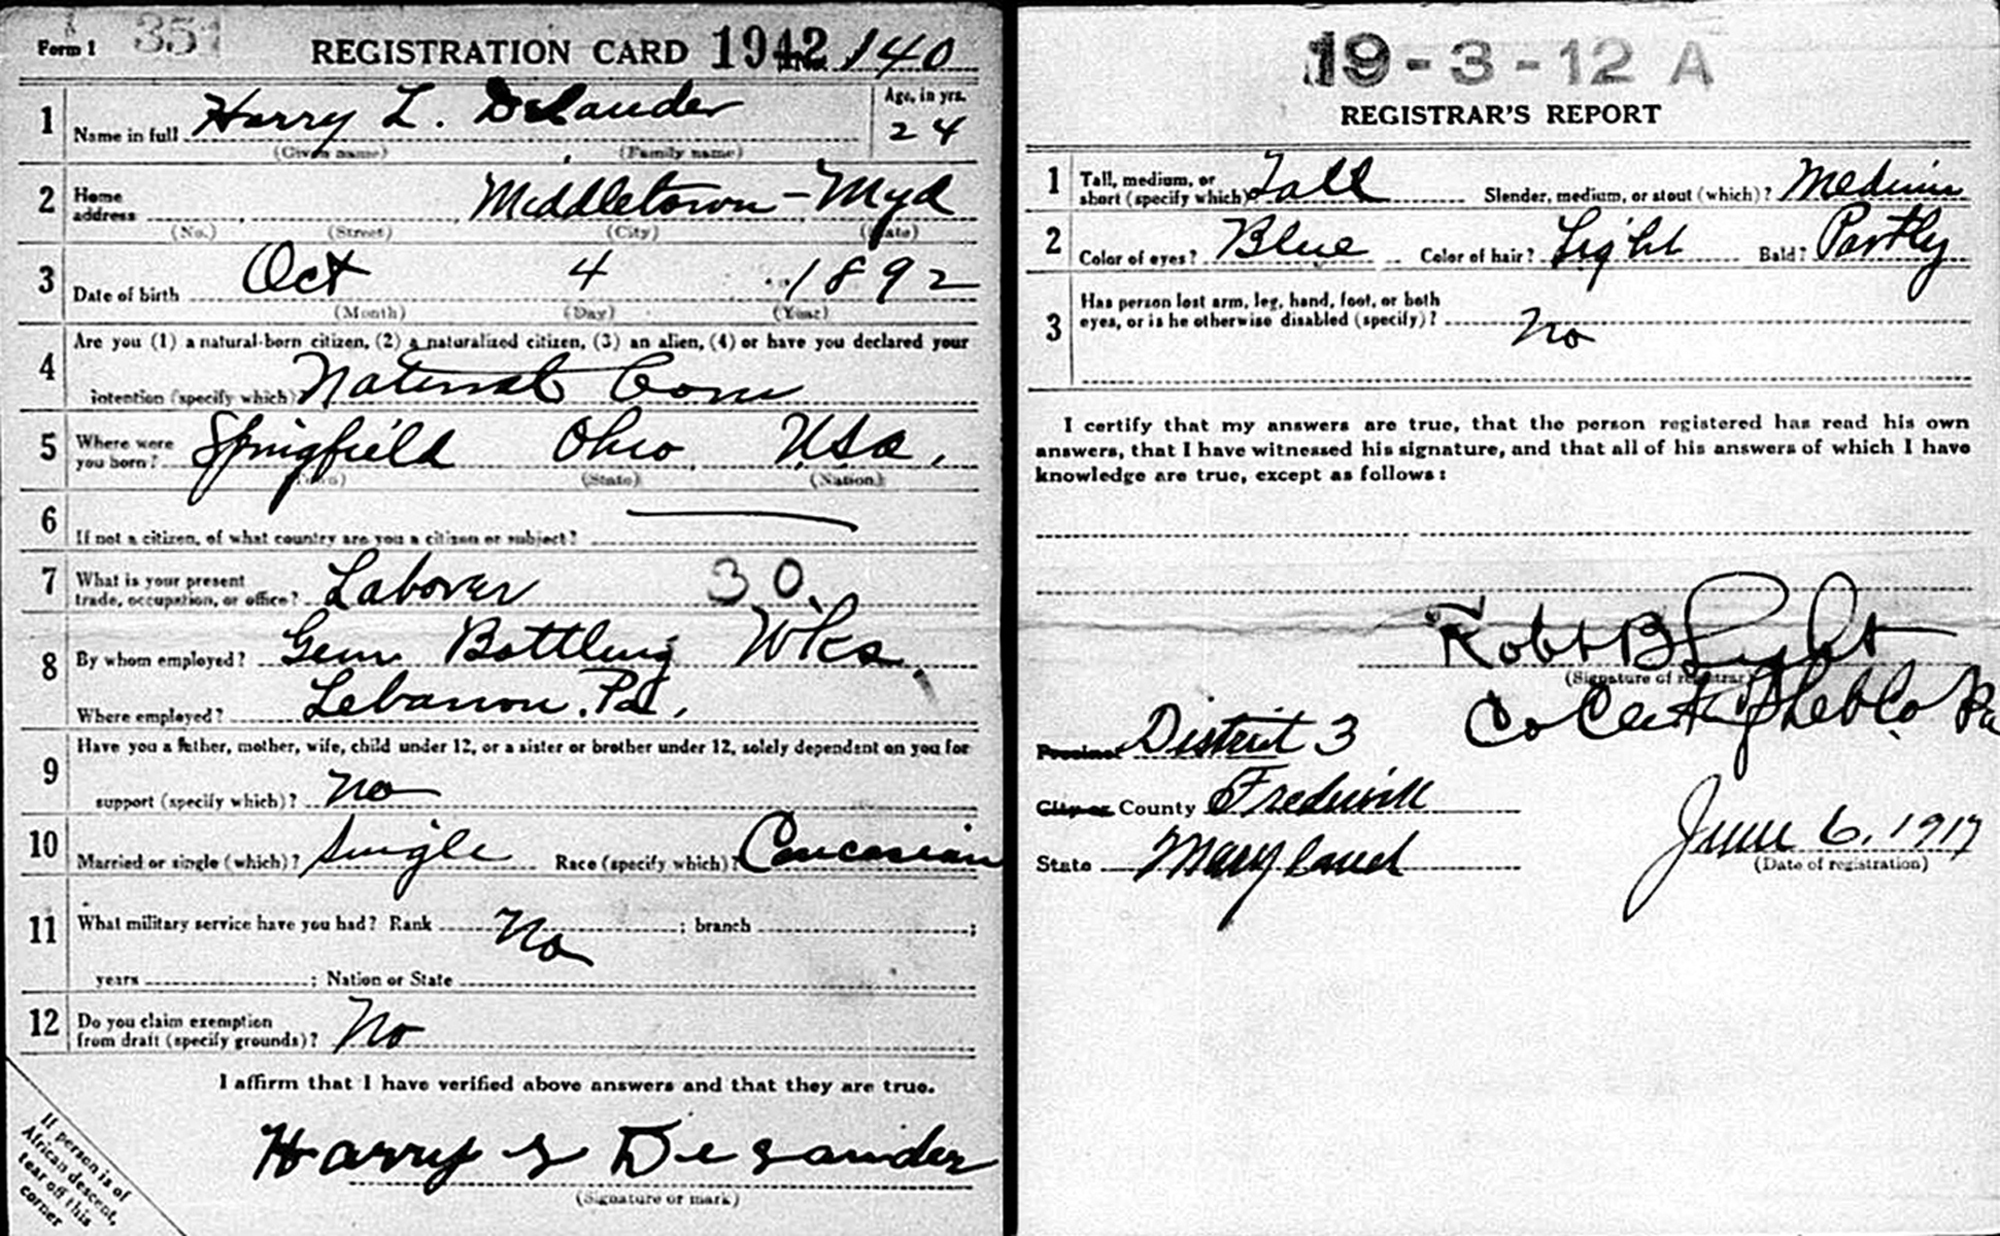 Form 1 351 REGISTRATION CARD 1942 No. 140
1 Name in full Harry L. DeLauder Age, in yrs. 24
(Given name) (Family name)
2 Home address Middletown - Myd
(No.) (Street) (City) (State)
3 Date of birth Oct 4 1892
(Month) (Day) (Year)
4 Are you (1) a natural-born citizen, (2) a naturalized citizen, (3) an alien, (4) or have you declared your
intention (specify which)? Natural Born
5 Where were you born? Springfield Ohio USA.
(Town) (State) (Nation)
6 If not a citizen, of what country are you a citizen or subject?
7 What is your present trade, occupation, or office? Laborer 30
8 By whom employed? Gem Bottling Wks.
Where employed? Lebanon. Pa.
9 Have you a father, mother, wife, child under 12, or a sister or brother under 12, solely dependent on you for
support (specify which)? No
10 Married or single (which)? Single Race (specify which)? Caucasian
11 What military service have you had? Rank No ; branch ;
years ; Nation or State
12 Do you claim exemption from draft (specify grounds)? No
I affirm that I have verified above answers and that they are true.
Harry L DeLauder
(Signature or mark)
If person is of
African descent,
tear off this
corner
19-3-12 A
REGISTRAR'S REPORT
1 Tall, medium, or short (specify which)? Tall Slender, medium, or stout (which)? Medium
2 Color of eyes? Blue Color of hair? Light Bald? Partly
3 Has person lost arm, leg, hand, foot, or both
eyes, or is he otherwise disabled (specify)? No
I certify that my answers are true, that the person registered has read his own
answers, that I have witnessed his signature, and that all of his answers of which I have
knowledge are true, except as follows:
Robt B Light
(Signature of registrar)
Co Clerk of Leb Co. Pa
Precinct District 3
City or County Frederick
State Maryland
June 6, 1917
(Date of registration)